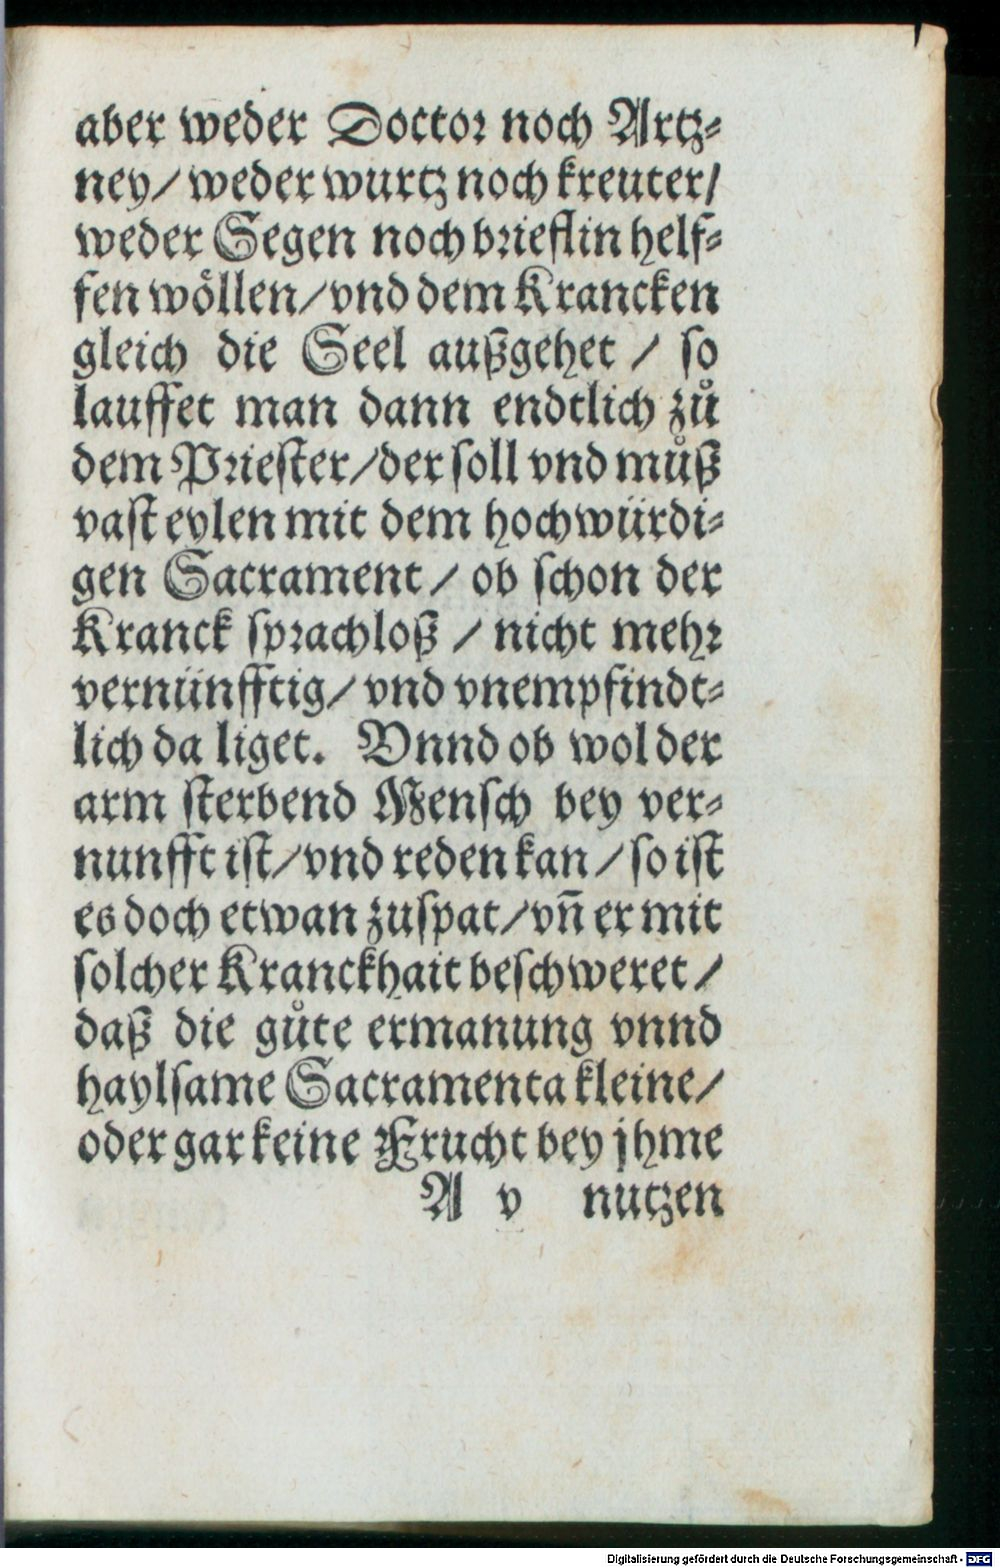 aber weder Doctor noch Artz-
ney/ weder wurtz noch kreuter/
weder Segen noch brieflin helf-
fen wöllen/ vnd dem Krancken
gleich die Seel außgehet / so
lauffet man dann endtlich zů
dem Priester/ der soll vnd můß
vast eylen mit dem hochwürdi-
gen Sacrament / ob schon der
Kranck sprachloß / nicht mehr
vernünfftig/ vnd vnempfindt-
lich da liget. Vnnd ob wol der
arm sterbend Mensch bey ver-
nunfft ist/ vnd reden kan / so ist
es doch etwan zuspat/ vñ er mit
solcher Kranckhait beschweret /
daß die gůte ermanung vnnd
haylsame Sacramenta kleine/
oder gar keine Frucht bey jhme
A v nutzen
Digitalisierung gefördert durch die Deutsche Forschungsgemeinschaft - DFG